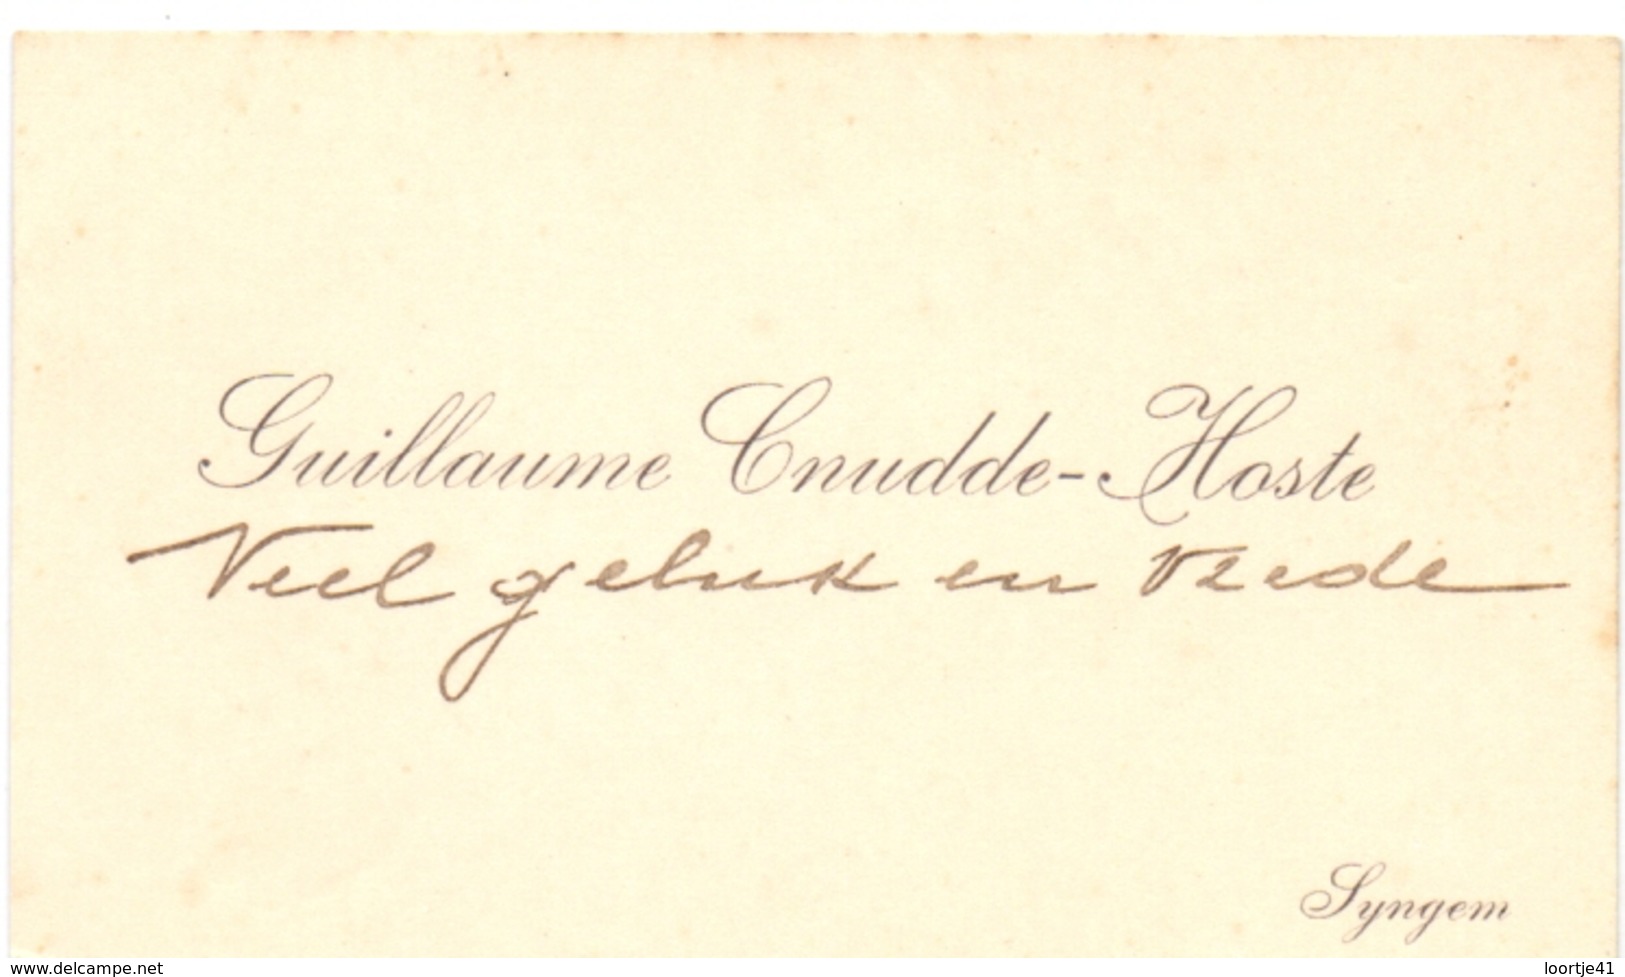 Guillaume Cnudde-Hoste
Veel geluk en vrede
Syngem
www.delcampe.net
loortje41